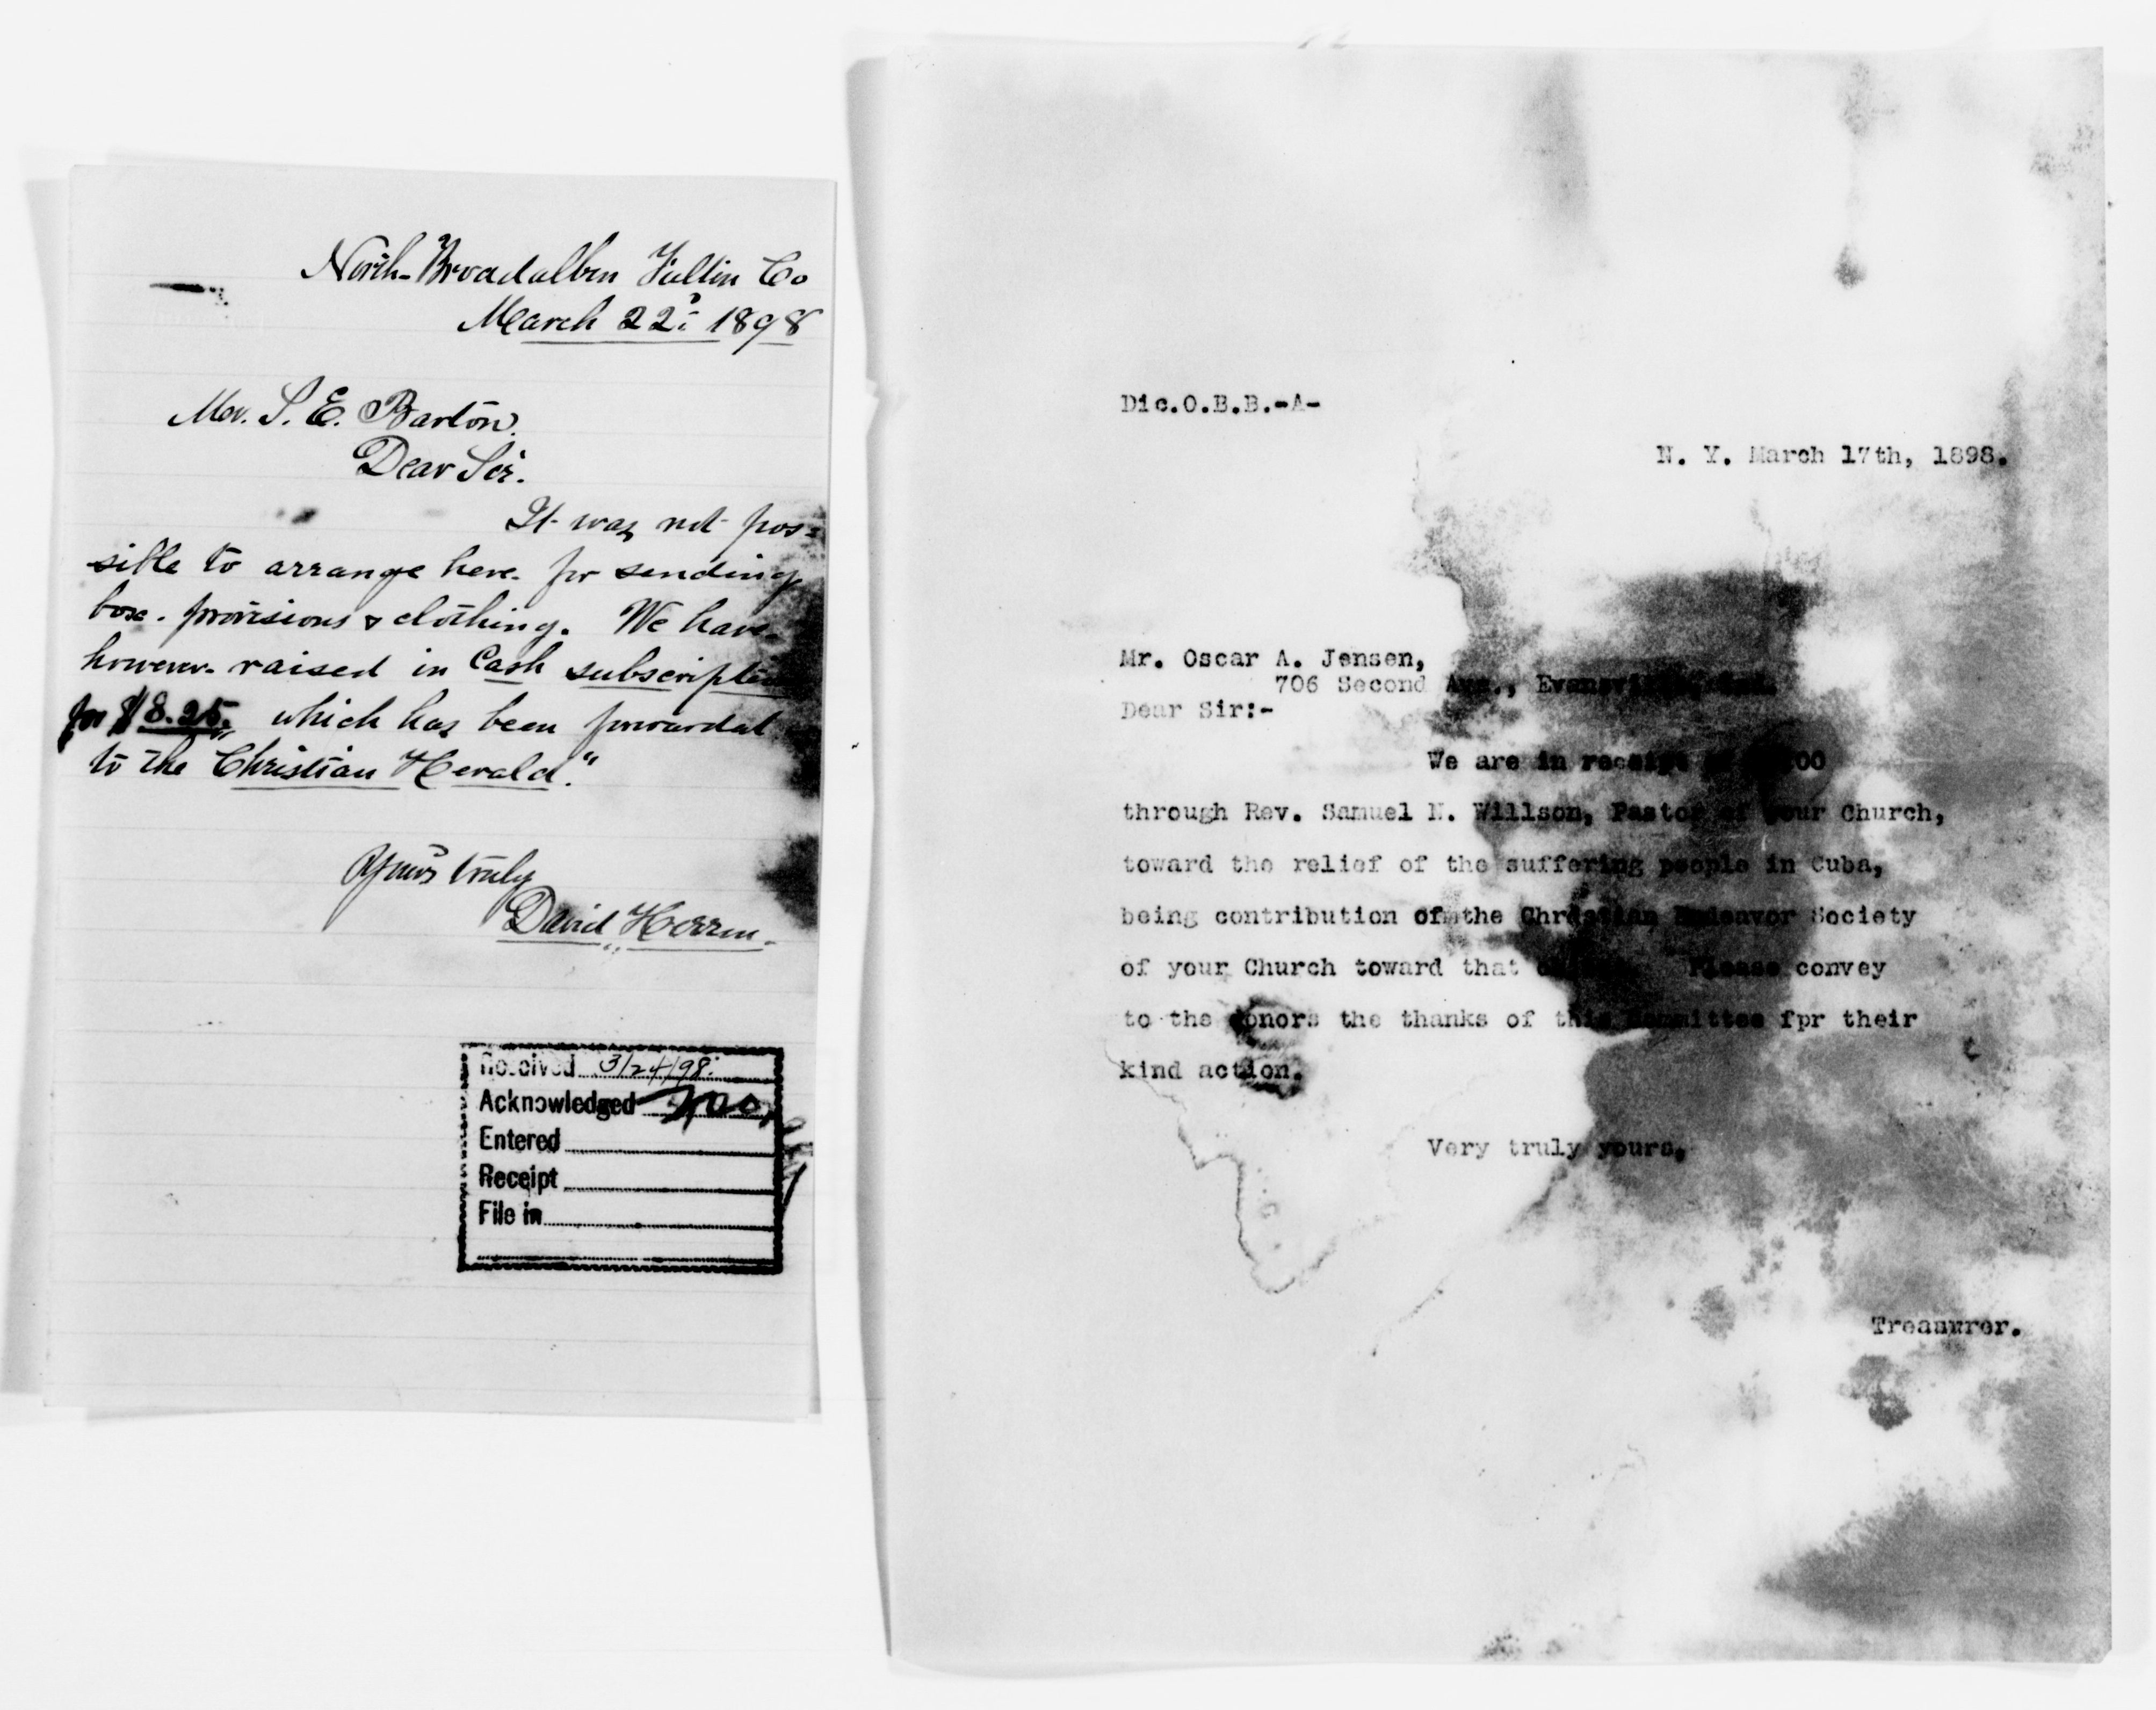 North-Broadalbin Fulton Co
March 22d 1898
Mr. S. E. Barton.
Dear Sir.
It was not pos=
sible to arrange here for sending
box. provisions & clothing. We have
however raised in Cash subscription
for $18.25. which has been forwarded
to the Christian Herald."
Yours truly
David
Received 3/24/98.
Acknowledged
Entered
Receipt
File in
Dic.O.B.B.-A-
N. Y. March 17th, 1898.
Mr. Oscar A. Jensen,
706 Second Ave., Evansville, Ind.
Dear Sir:-
We are in receipt of
through Rev. Samuel N. Willson, Pastor of your Church,
toward the relief of the suffering people in Cuba,
being contribution of the Christian Endeavor Society
of your Church toward that Please convey
to the donors the thanks of this Committee fpr their
kind action.
Very truly yours,
Treasurer.